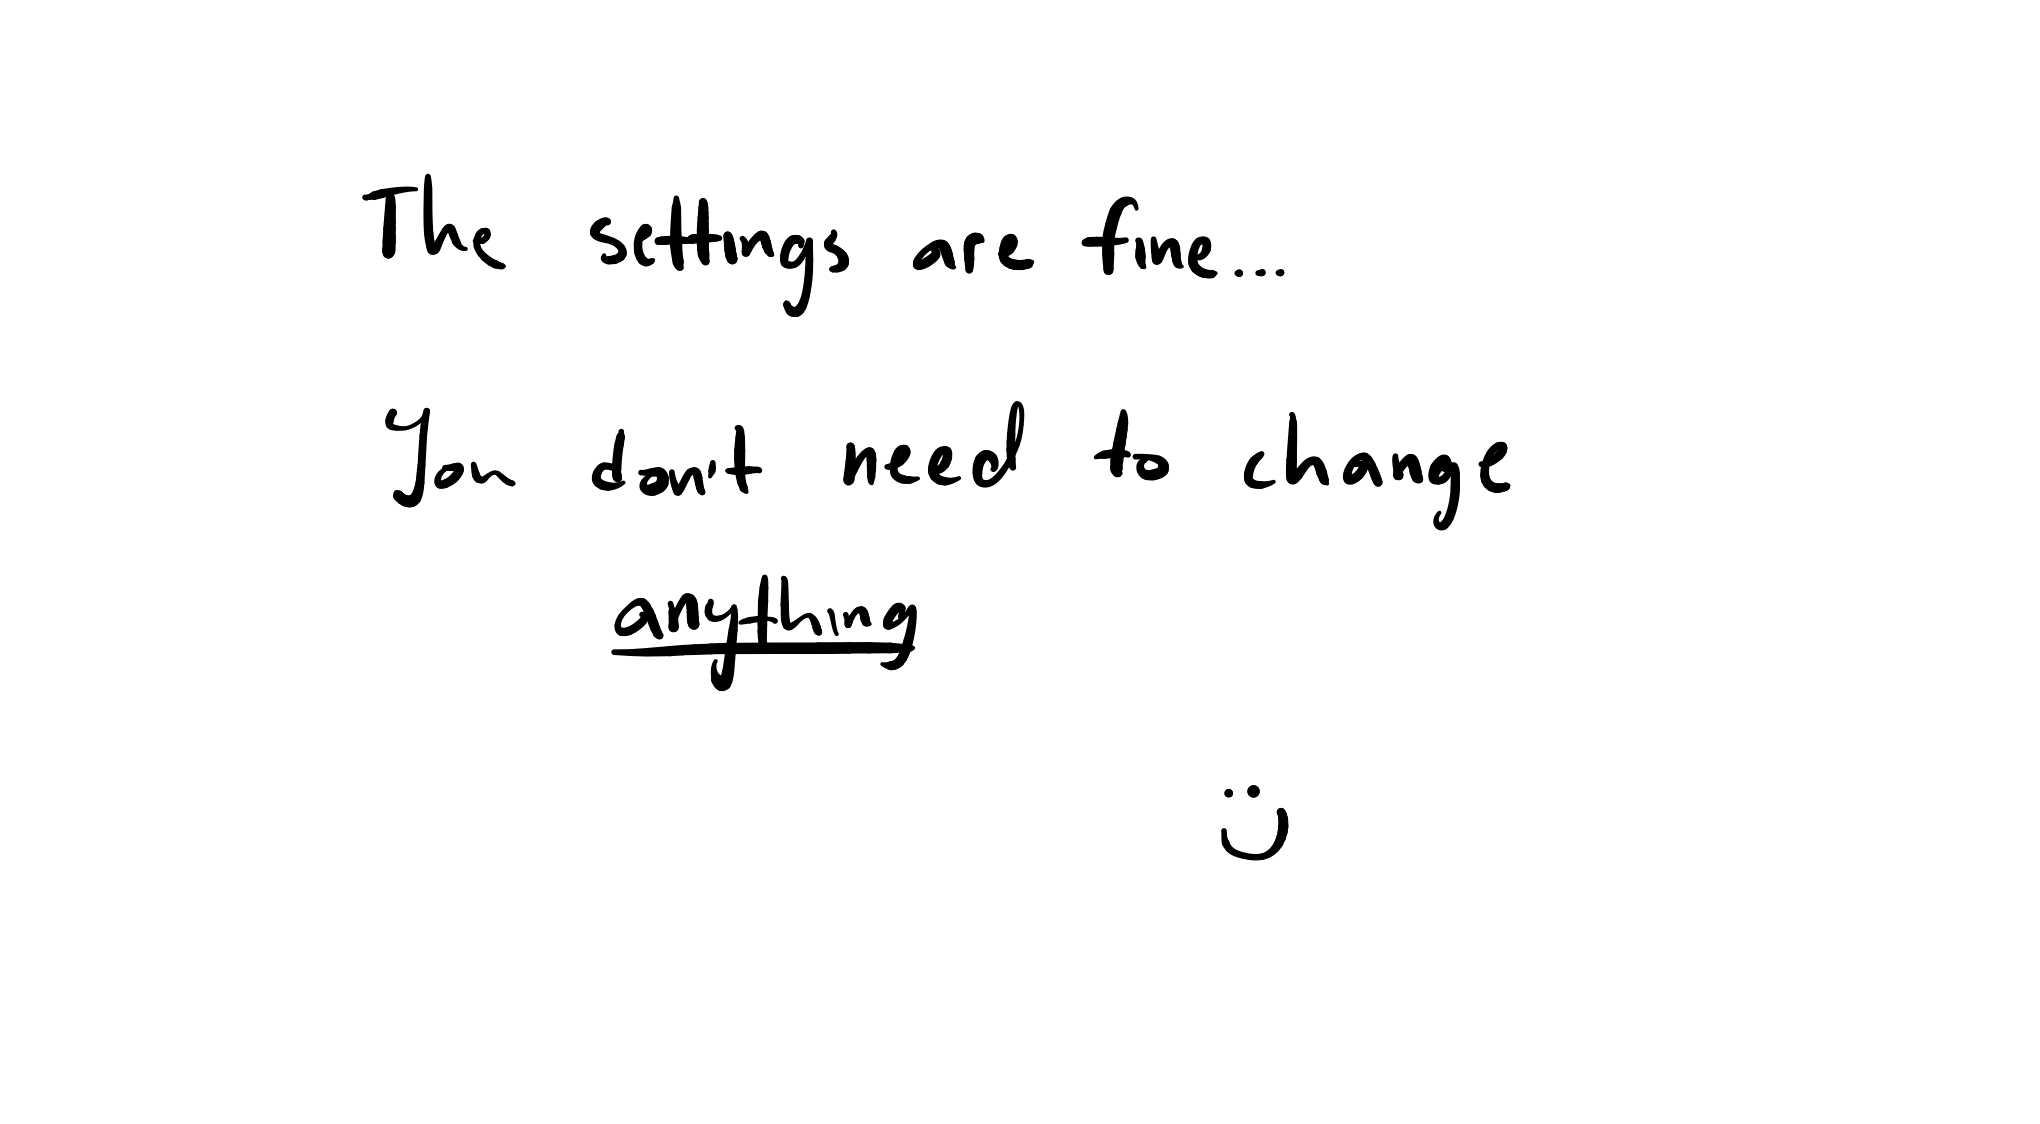 The settings are fine...
You don't need to change
anything